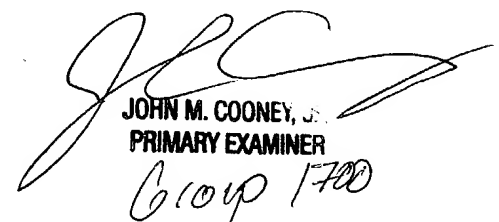 JOHN M. COONEY, J.
PRIMARY EXAMINER
Group 1700